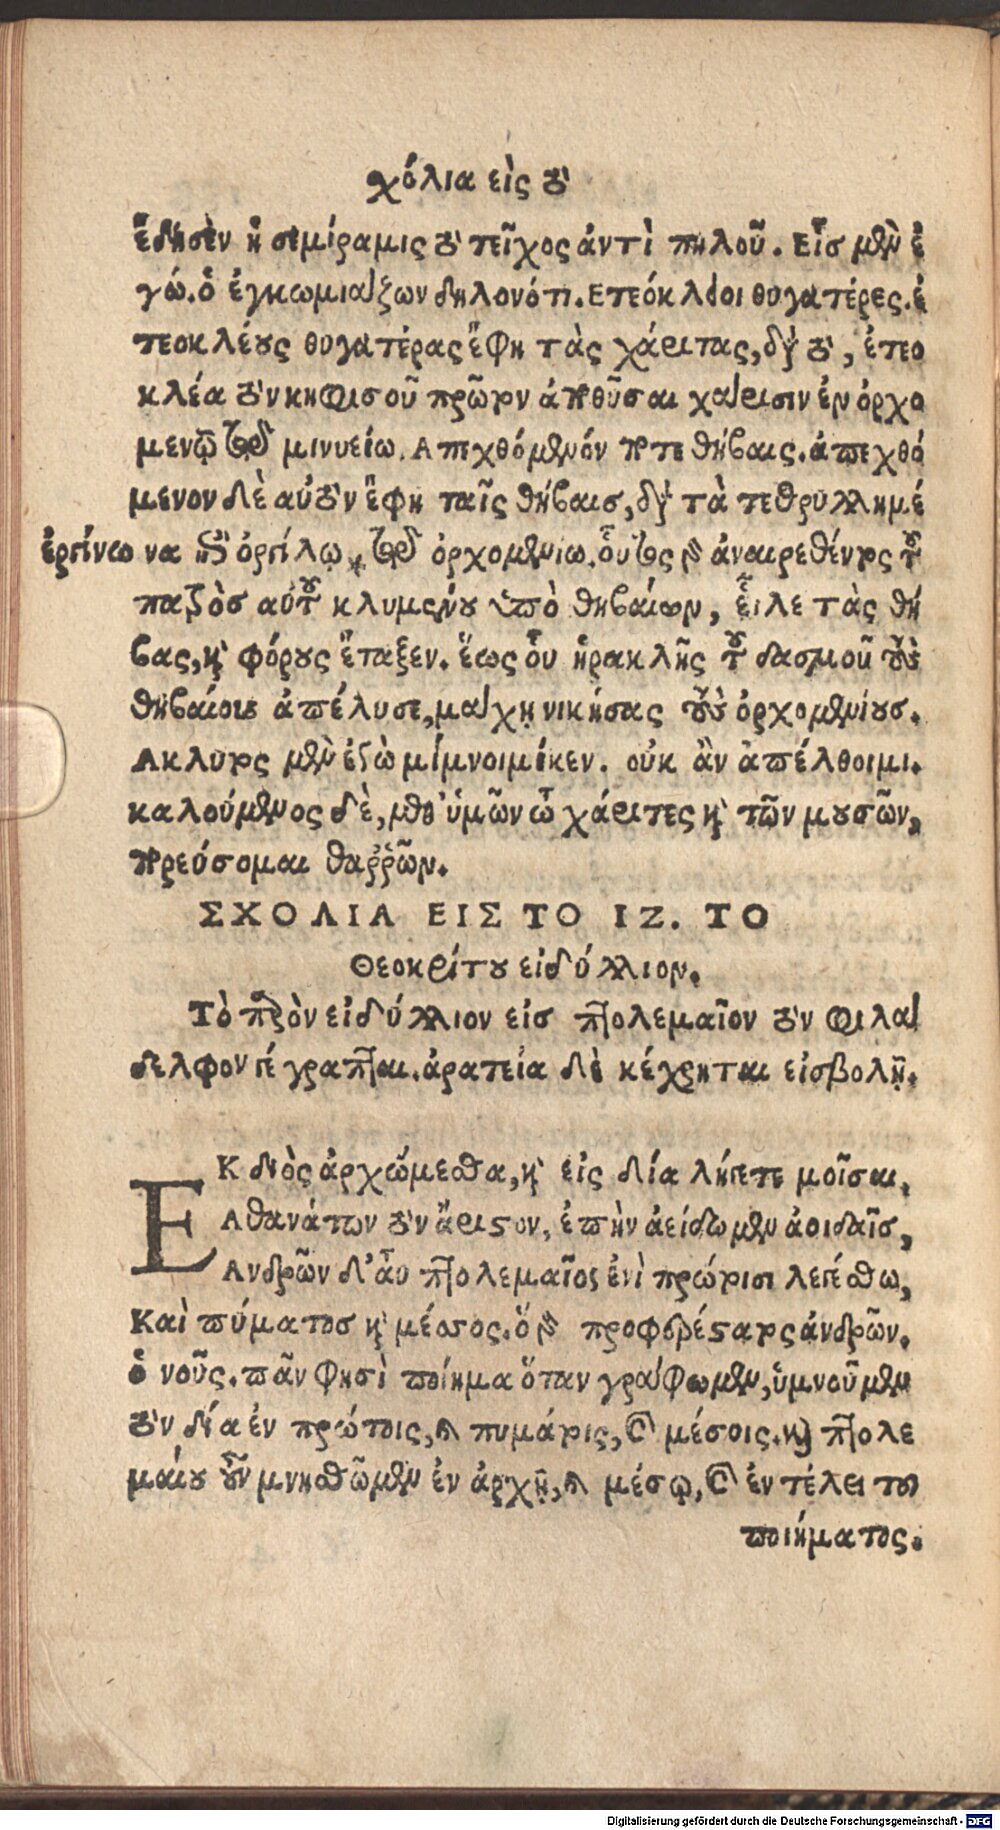 χόλια εἰς τὸ
ἔδησεν ἡ σεμίραμις τὸ τεῖχος ἀντὶ πηλοῦ. Εἷσ μὲν ἐ
γώ. ὁ ἐγκωμιάζων δηλονότι. Ετεόκλειοι θυγατέρες. ἐ
τεοκλέους θυγατέρας ἔφη τὰς χάριτας, διὰ τὸ, ἐτεο
κλέα τὸν κηφισοῦ πρῶτον θῦσαι χάρισιν ἐν ὀρχο
μενῷ τῷ μινυείῳ. Απεχθόμενόν ποτε θήβαις. ἀπεχθό
μενον δὲ αὐτὸν ἔφη ταῖς θήβαισ, διὰ τὰ τεθρυλλημέ
ἐργίνῳ
να τῷ ὀργίλῳ * τῷ ὀρχομενίῳ. οὗτος γὰρ ἀναιρεθέντος τοῦ
πατρὸσ αὐτοῦ κλυμένου ὑπὸ θηβαίων, εἷλε τὰς θή
βας, καὶ φόρους ἔταξεν. ἕως οὗ ἡρακλῆς τοῦ δασμοῦ τοὺς
θηβαίους ἀπέλυσε, μάχῃ νικήσας τοὺς ὀρχομενίουσ.
Ακλητος μὲν ἐγὼ μίμνοιμί κεν. οὐκ ἂν ἀπέλθοιμι.
καλούμενος δὲ, μεθ' ὑμῶν ὦ χάριτες καὶ τῶν μουσῶν,
πορεύσομαι θαῤῥῶν.
ΣΧΟΛΙΑ ΕΙΣ ΤΟ ΙΖ. ΤΟ
Θεοκρίτου εἰδύλλιον.
Τὸ παρὸν εἰδύλλιον εἰσ πτολεμαῖον τὸν φιλά
δελφον γέγραπται. ἀρατεία δὲ κέχρηται εἰσβολῇ.
ΕΚ διὸς ἀρχώμεσθα, καὶ εἰς δία λήγετε μοῖσαι,
Αθανάτων τὸν ἄριστον, ἐπὴν ἀείδωμεν ἀοιδαῖσ,
Ανδρῶν δ' αὖ πτολεμαῖος ἐνὶ πρώτοισι λεγέσθω,
Καὶ πύματοσ καὶ μέσσος. ὃ γὰρ προφερέστατος ἀνδρῶν.
ὁ νοῦς. πᾶν φησὶ ποίημα ὅταν γράφωμεν, ὑμνοῦμεν
τὸν δία ἐν πρώτοις, καὶ πυμάτοις, καὶ μέσοις. καὶ πτολε
μαίου οὖν μνησθῶμεν ἐν ἀρχῇ, καὶ μέσῳ, καὶ ἐν τέλει του
ποιήματος.
Digitalisierung gefördert durch die Deutsche Forschungsgemeinschaft - DFG